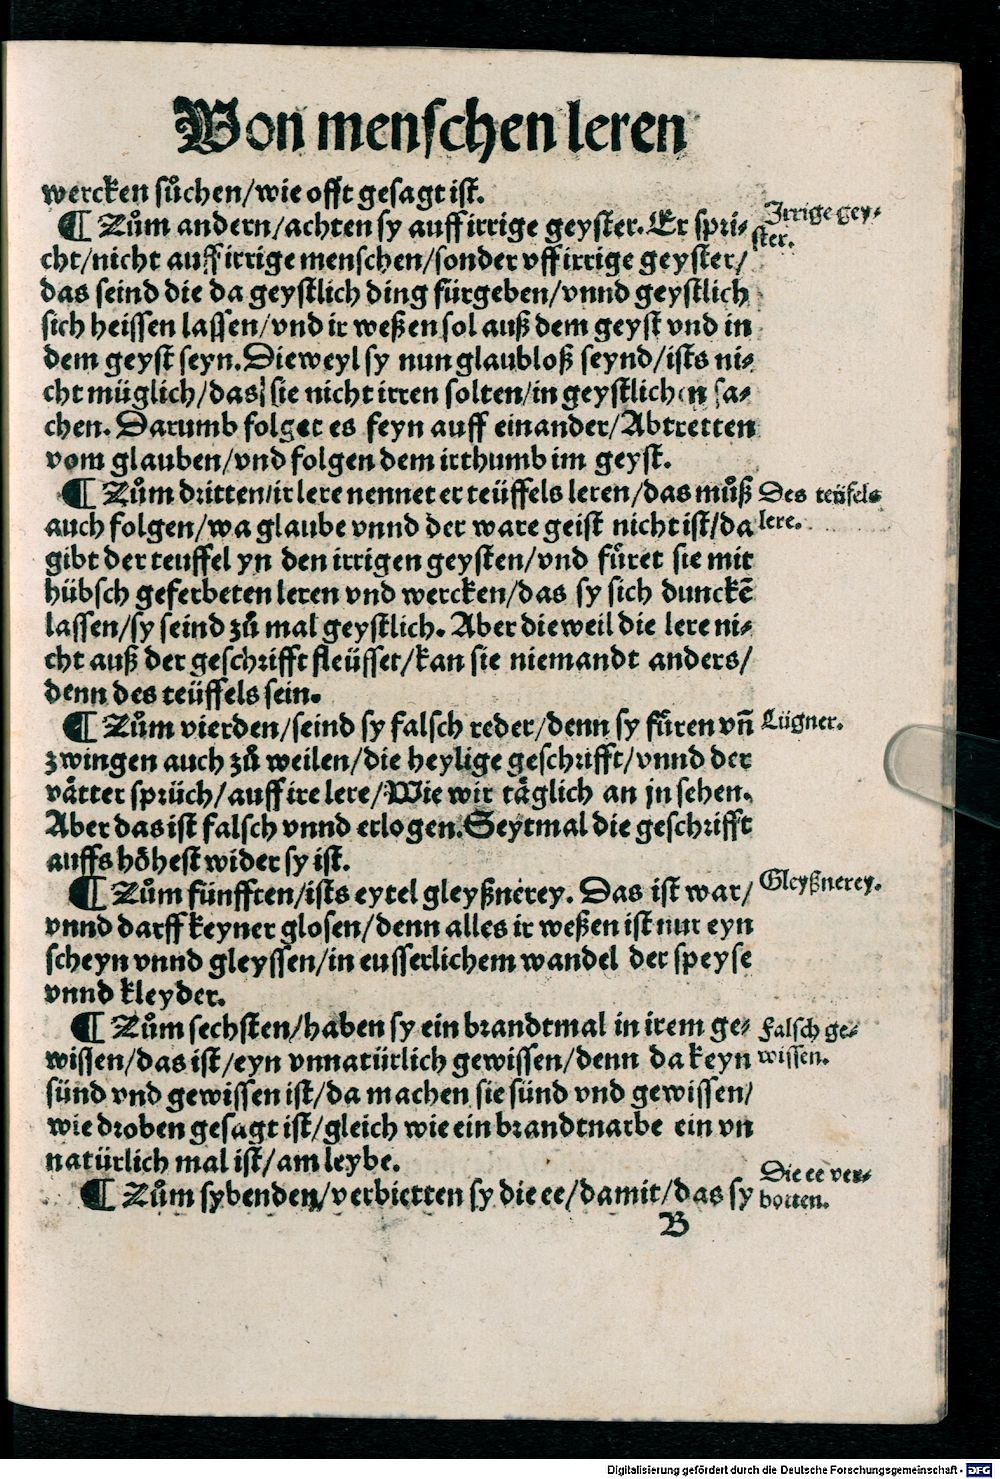 Von menschen leren
wercken sůchen/wie offt gesagt ist.
¶ Zům andern/achten sy auff irrige geyster. Er spri⸗
cht/nicht auff irrige menschen/sonder vff irrige geyster/
das seind die da geystlich ding fürgeben/vnnd geystlich
sich heissen lassen/vnd ir weßen sol auß dem geyst vnd in
dem geyst seyn. Dieweyl sy nun glaubloß seynd/ists ni⸗
cht müglich/das sie nicht irren solten/in geystlichen sa⸗
chen. Darumb folget es feyn auff einander/Abtretten
vom glauben/vnd folgen dem irthumb im geyst.
Irrige gey⸗
ster.
¶ Zům dritten/ir lere nennet er teüffels leren/das můß
auch folgen/wa glaube vnnd der ware geist nicht ist/da
gibt der teuffel yn den irrigen geysten/vnd fůret sie mit
hübsch geferbeten leren vnd wercken/das sy sich dunckē
lassen/sy seind zů mal geystlich. Aber dieweil die lere ni⸗
cht auß der geschrifft fleüsset/kan sie niemandt anders/
denn des teüffels sein.
Des teüfels
lere.
¶ Zům vierden/seind sy falsch reder/denn sy fůren vñ
zwingen auch zů weilen/die heylige geschrifft/vnnd der
vätter sprüch/auff ire lere/Wie wir täglich an jn sehen.
Aber das ist falsch vnnd erlogen. Seytmal die geschrifft
auffs höhest wider sy ist.
Lügner.
¶ Zům fünfften/ists eytel gleyßnerey. Das ist war/
vnnd darff keyner glosen/denn alles ir weßen ist nur eyn
scheyn vnnd gleyssen/in eusserlichem wandel der speyse
vnnd kleyder.
Gleyßnerey.
¶ Zům sechsten/haben sy ein brandtmal in irem ge⸗
wissen/das ist/eyn vnnatürlich gewissen/denn da keyn
sünd vnd gewissen ist/da machen sie sünd vnd gewissen/
wie droben gesagt ist/gleich wie ein brandtnarbe ein vn
natürlich mal ist/am leybe.
Falsch ge⸗
wissen.
¶ Zům sybenden/verbietten sy die ee/damit/das sy
Die ee ver⸗
botten.
B
Digitalisierung gefördert durch die Deutsche Forschungsgemeinschaft - DFG